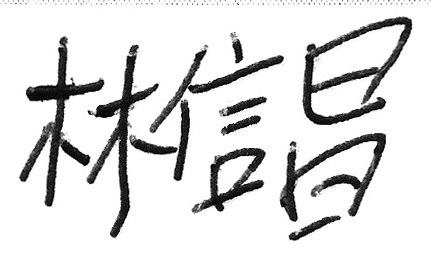 林信昌